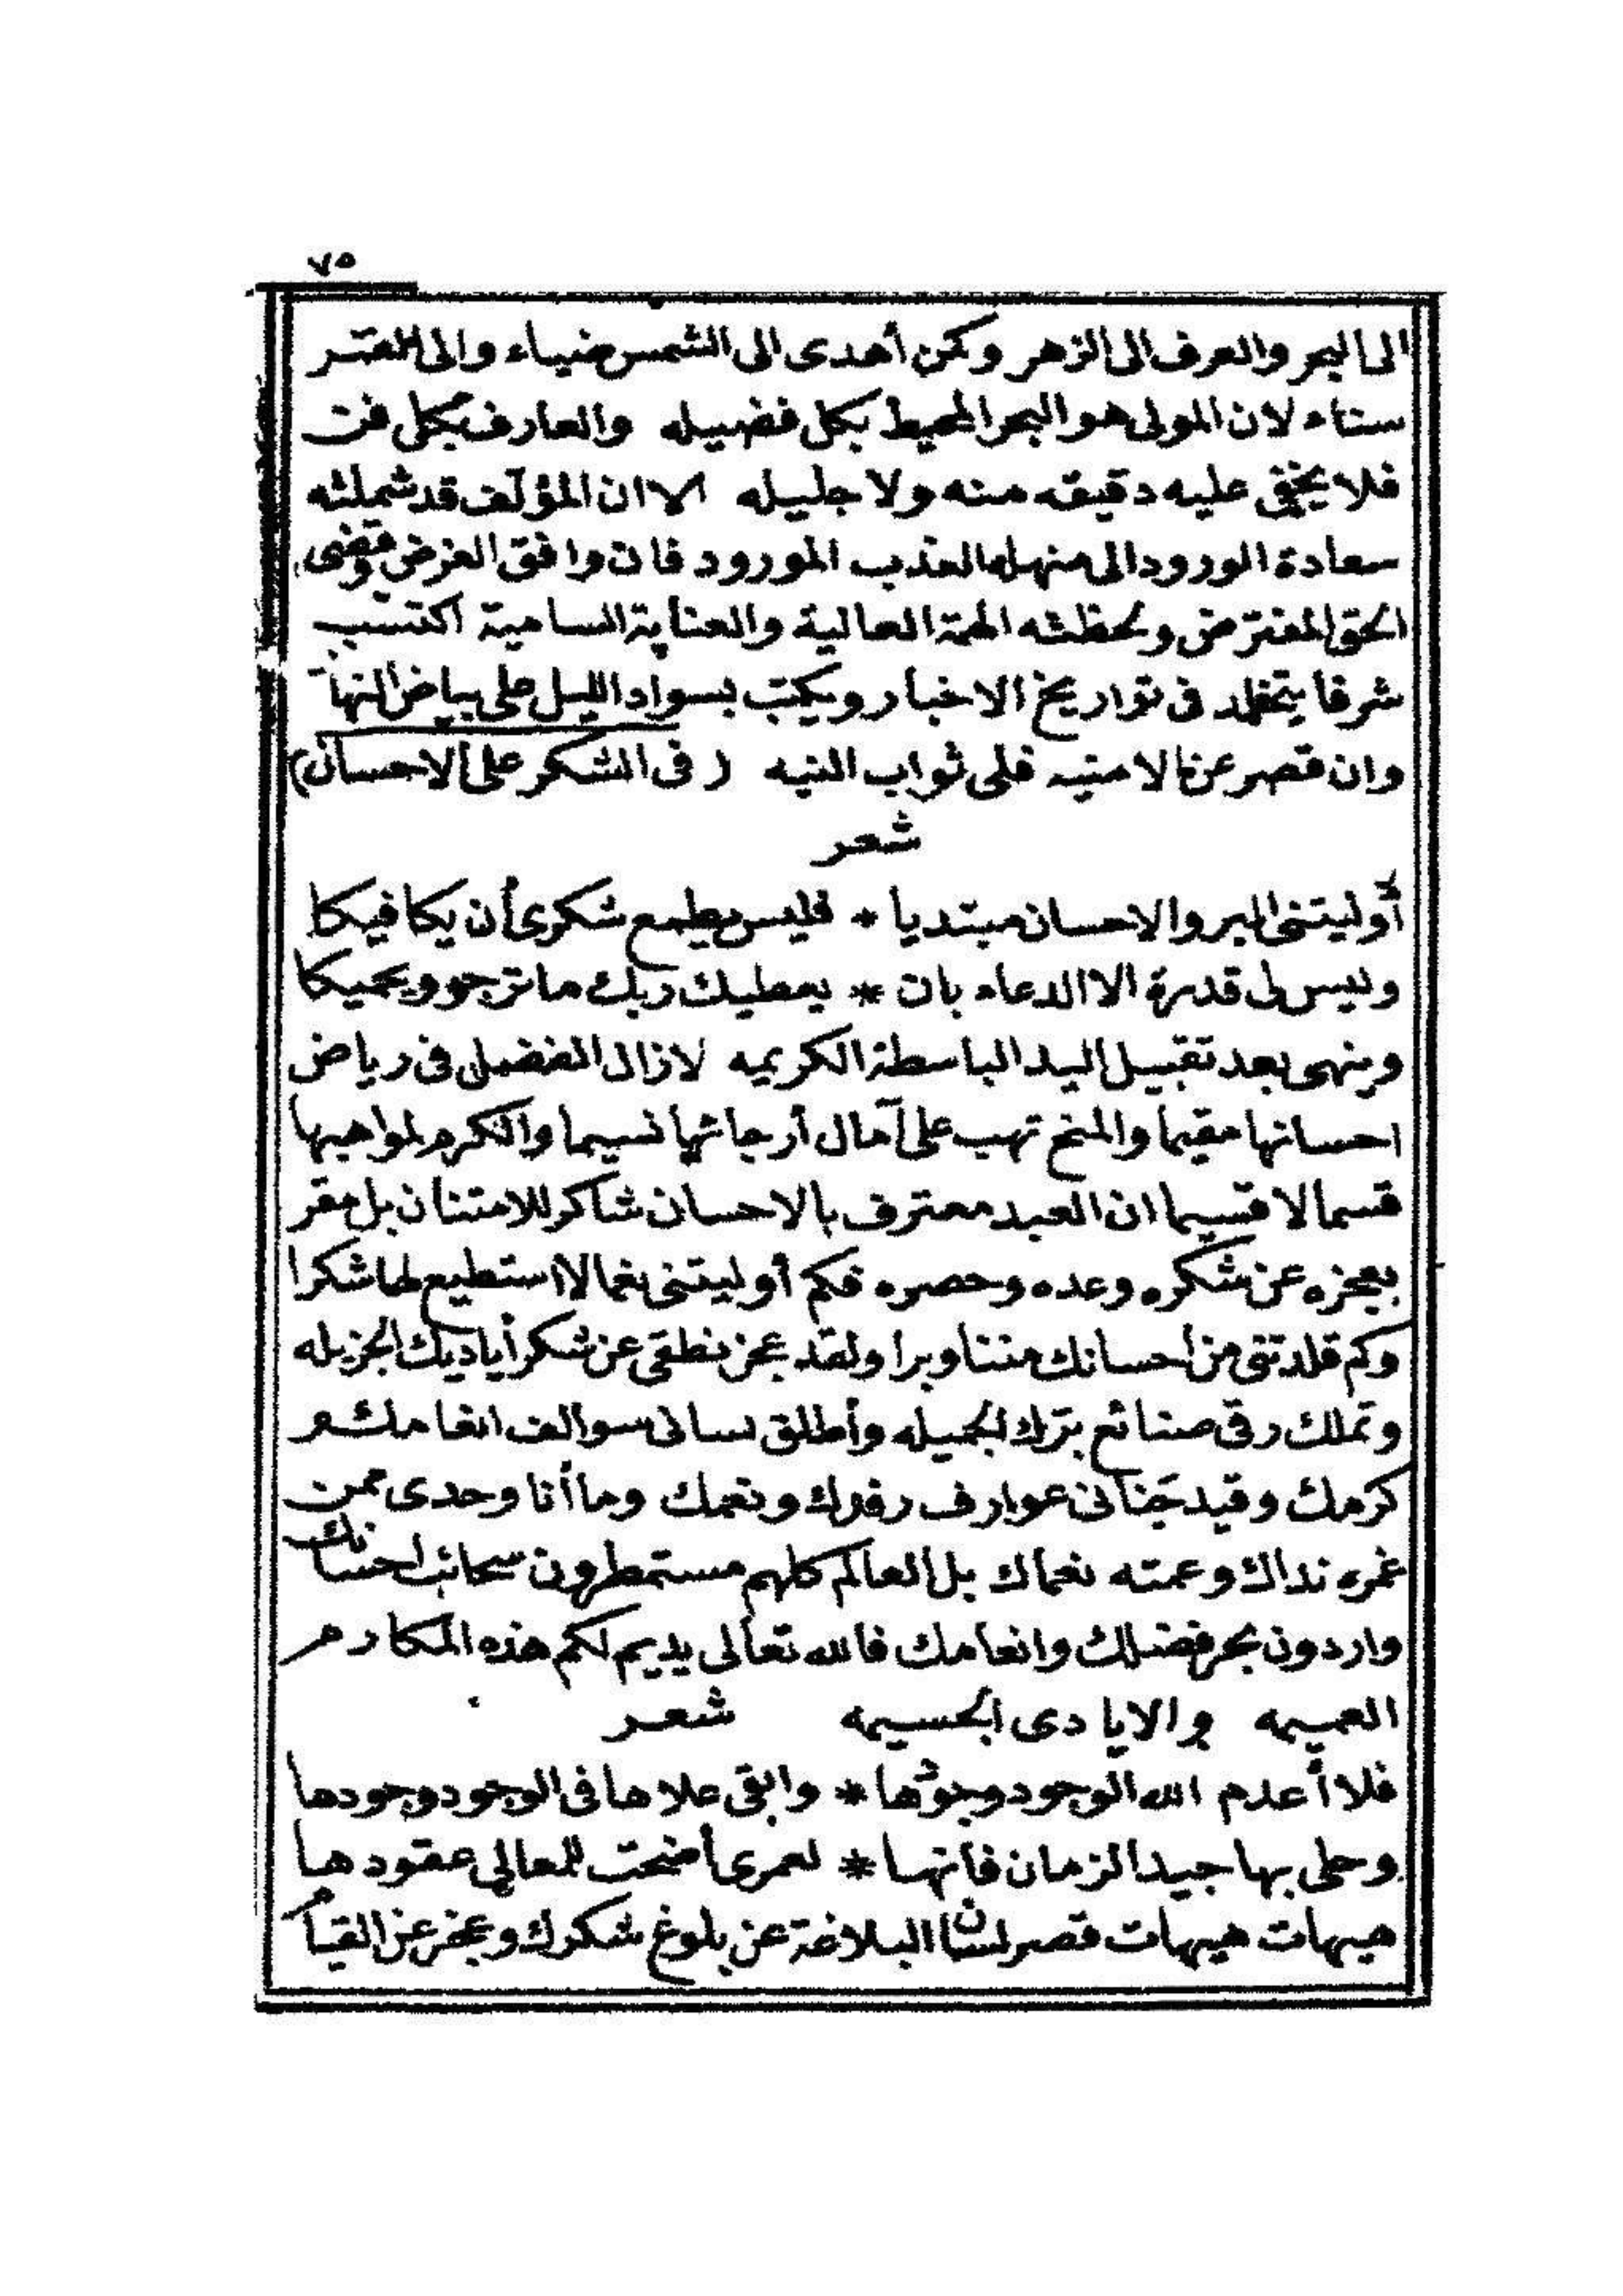 ٧٥
الى البحر والعرف الى الزهر وكمن أهدى الى الشمس ضياء والى القمر
سناء لان المولى هو البحر المحيط بكل فضيله والعارف بكل فن
فلا يخفى عليه دقيقه منه ولا جليله الا ان المؤلف قد شملته
سعادة الورود الى منهله العذب المورود فان وافق الغرض وقضى
الحق المفترض ولحظته الهمة العالية والعناية السامية اكتسب
شرفا يتخلد فى تواريخ الاخبار ويكتب بسواد الليل على بياض النهار
وان قصر عن الامنيه فلى ثواب النيه (فى الشكر على الاحسان)
شعر
أوليتنى البر والاحسان مبتديا * فليس يطمع شكرى أن يكافيكا
وليس لى قدرة الا الدعاء بان * يعطيك ربك ما ترجو ويحميكا
وينهى بعد تقبيل اليد الباسطة الكريمه لازال الفضل فى رياض
احسانها مقيما والمنح تهب على آمال أرجائها نسيما والكرم لمواهبها
قسما لا قسيما ان العبد معترف بالاحسان شاكر للامتنان بل مقر
بعجزه عن شكره وعده وحصره فكم أوليتنى نعما لا استطيع لها شكرا
وكم قلدتنى من احسانك مننا وبرا ولقد عجز نطقى عن شكر أياديك الجزيله
وتملك رقى صنائع برك الجميله وأطلق لسانى سوالف انعامك و
كرمك وقيد جنانى عوارف رفدك ونعمك وما أنا وحدى ممن
غمره نداك وعمته نعماك بل العالم كلهم مستمطرون سحائب احسانك
واردون بحر فضلك وانعامك فالله تعالى يديم لكم هذه المكارم
العميمه والايادى الجسيمه شعر
فلا أعدم الله الوجود وجودها * وابقى علاها فى الوجود وجودها
وحلى بها جيد الزمان فانها * لعمرى أضحت للمعالي عقودها
هيهات هيهات قصر لسان البلاغة عن بلوغ شكرك وعجز عن القيام